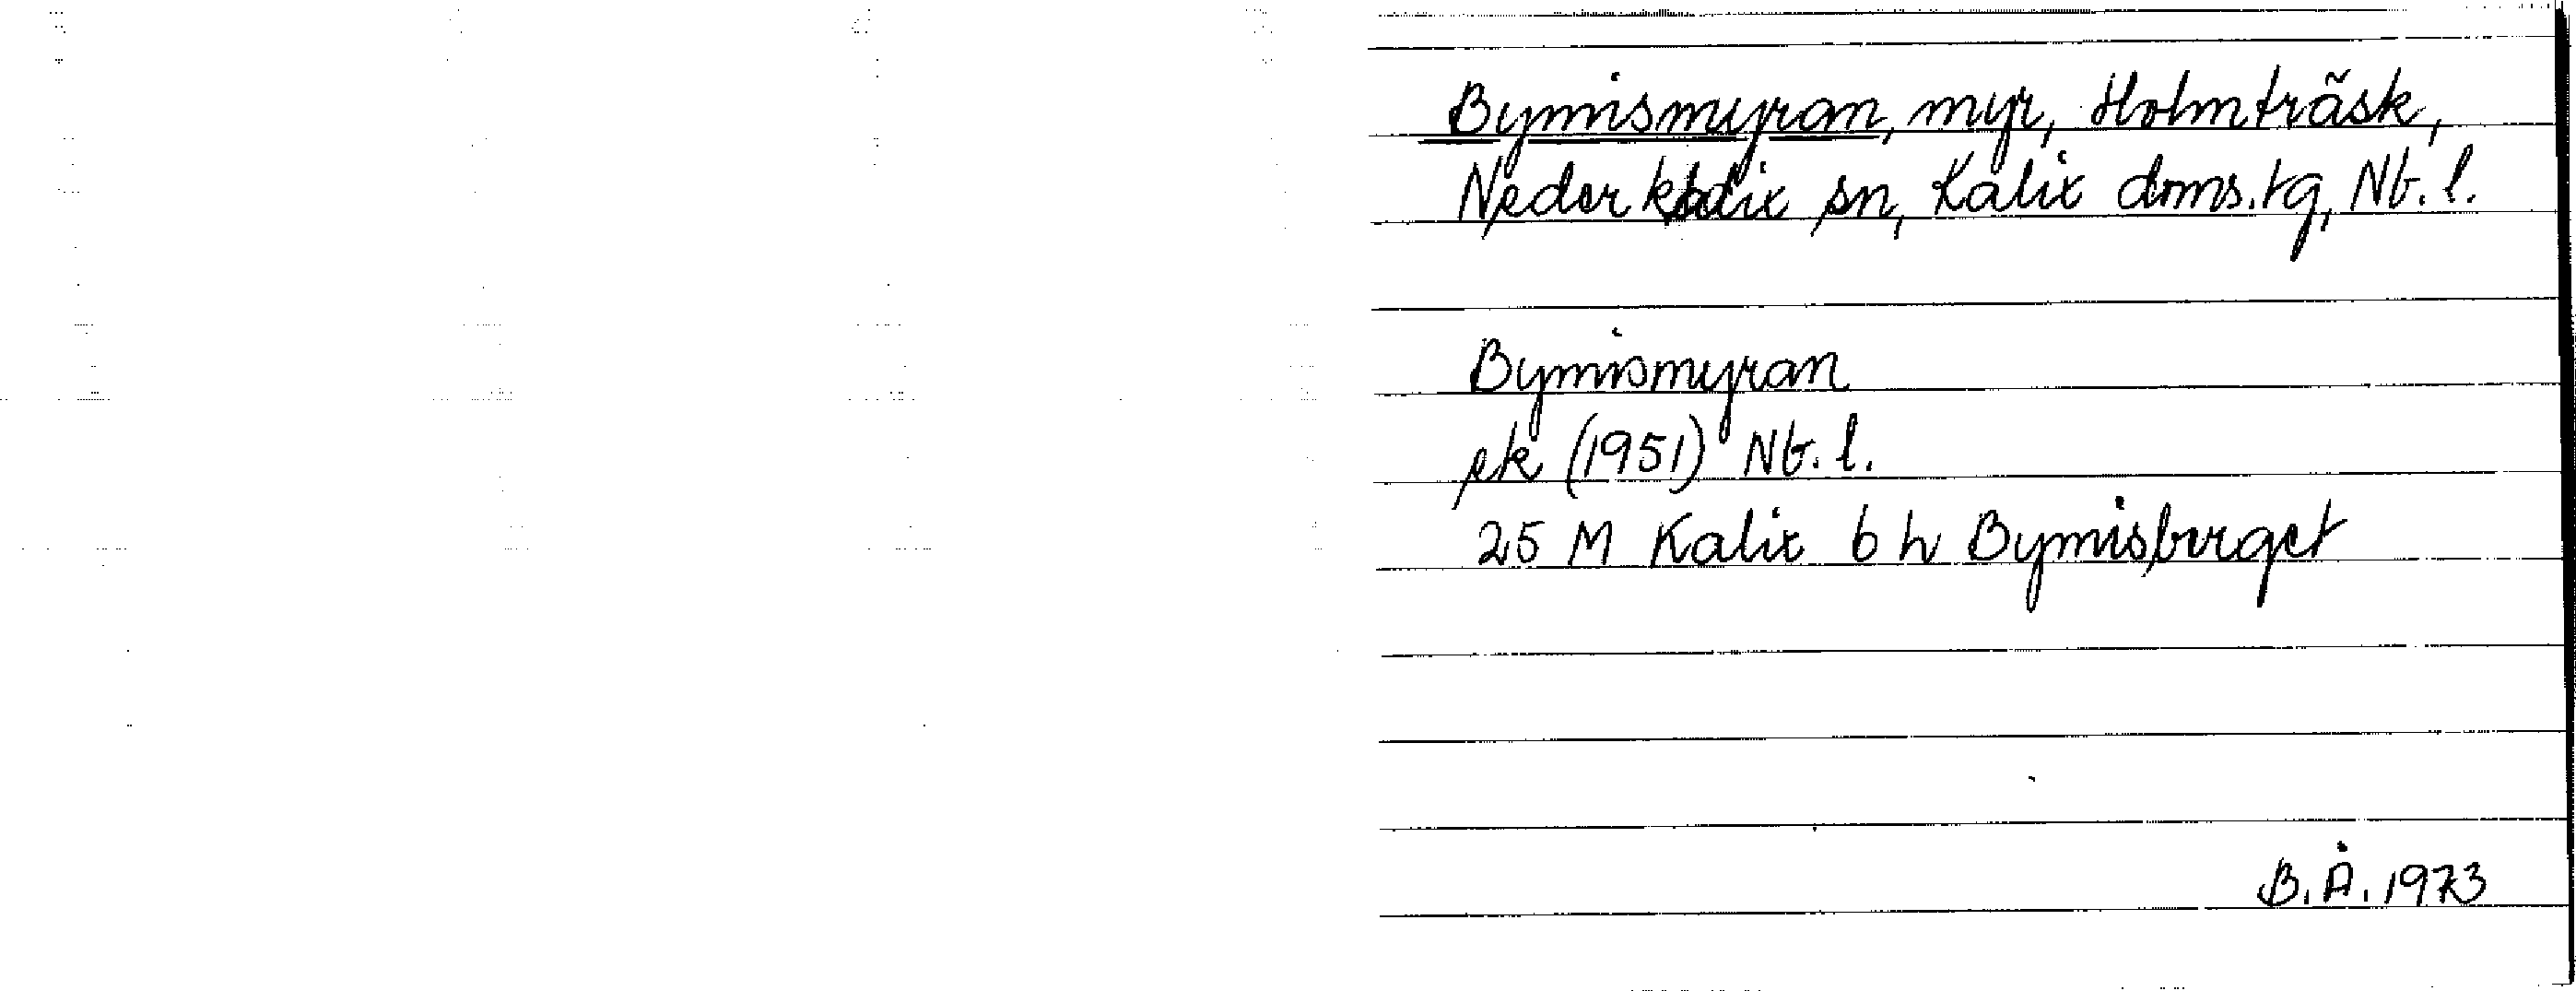 Bymismyran, myr, Holmträsk,
Nederkalix sn, Kalix doms.tg, Nb. l.
Bymismyran
ek (1951) Nb. l.
25 M Kalix 6 h Bymisberget
B. Å. 1973